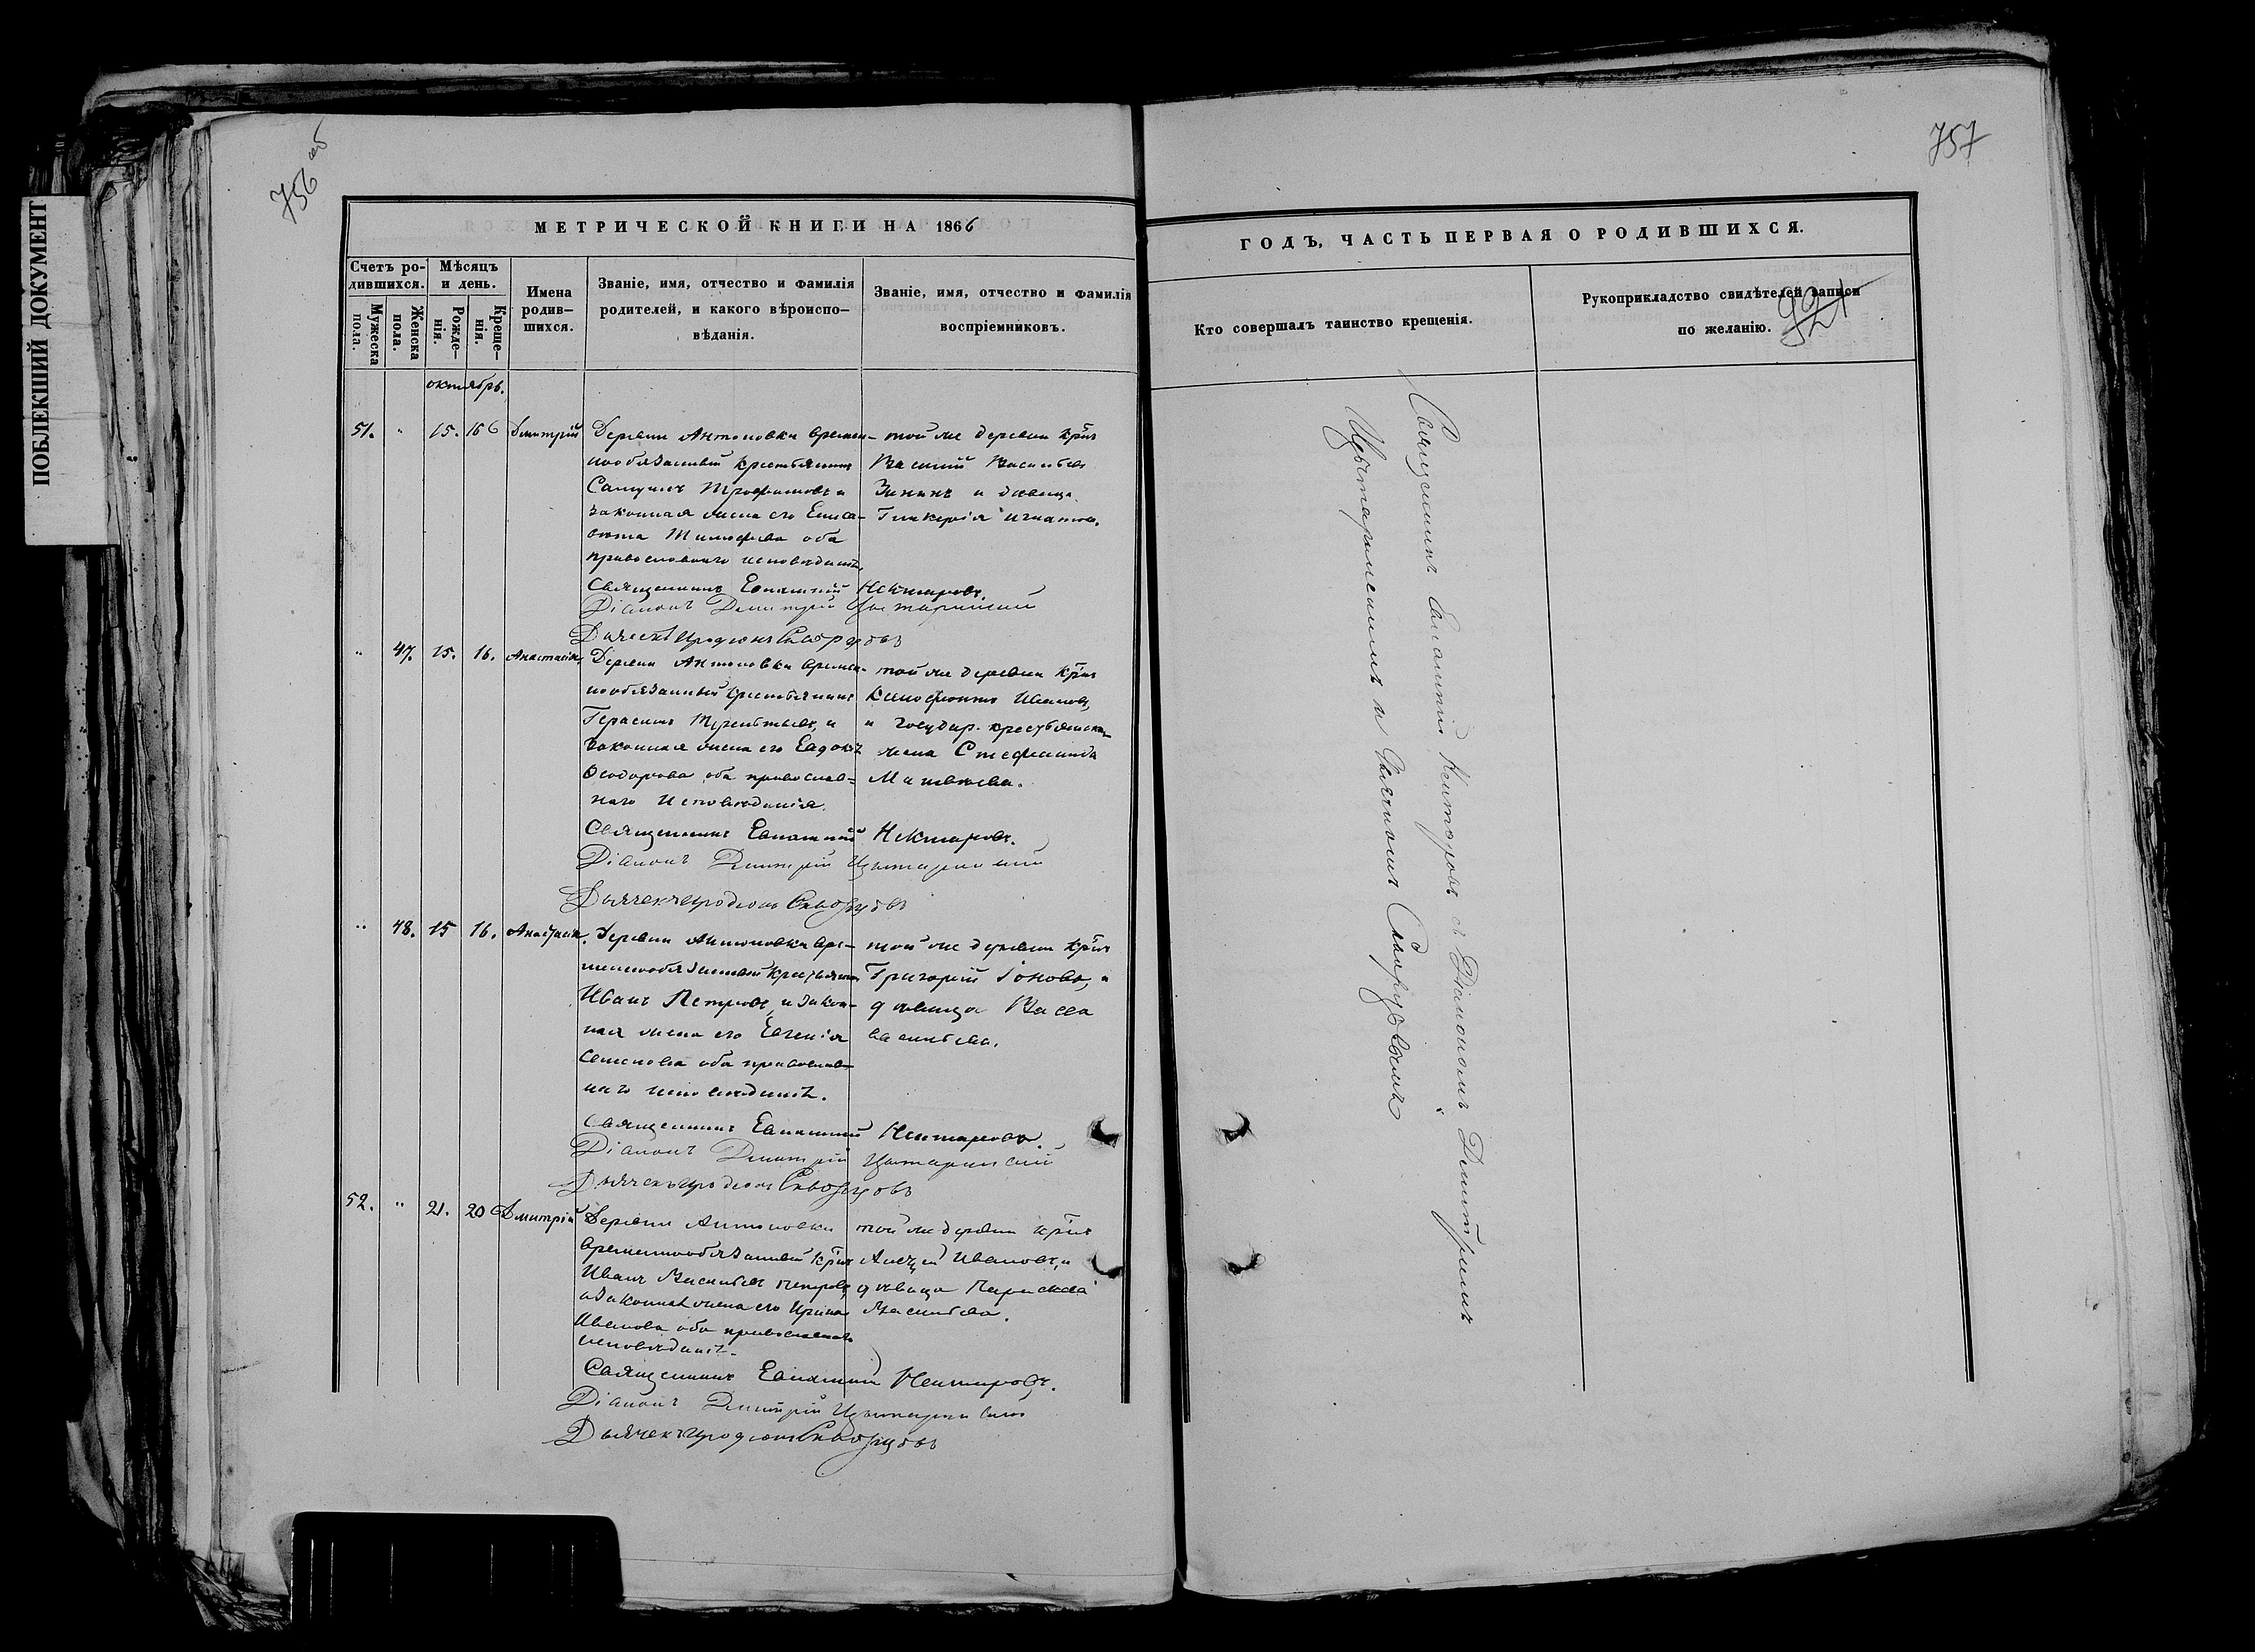 ПОБЛЕКШИЙ ДОКУМЕНТ
756 об
757
МЕТРИЧЕСКОЙ КНИГИ НА 1866
ГОДЪ, ЧАСТЬ ПЕРВАЯ О РОДИВШИХСЯ.
Счетъ ро-
дившихся.
Мужеска
пола.
Женска
пола.
Мѣсяцъ
и день.
Рожде-
нія.
Креще-
нія.
Имена
родив-
шихся.
Званіе, имя, отчество и фамилія
родителей, и какого вѣроиспо-
вѣданія.
Званіе, имя, отчество и фамилія
воспріемниковъ.
Кто совершалъ таинство крещенія.
Рукоприкладство свидѣтелей записи
по желанію.
октябрь.
51. " 15. 16 Дмитрій
Деревни Антоновки времен-
нообязанный крестьянинъ
Самуилъ Трофимовъ и
законная жена его Елиса-
вета Тимофѣева оба
православнаго исповѣданія.
той же деревни кр-нъ
Василій Васильевъ
Зининъ и дѣвица
Гликерія Игнатова.
Священникъ Евпатій Нектаровъ.
Діаконъ Дмитрій
Дьячекъ Иродіонъ Скворцовъ
" 47. 15. 16. Анастасія
Деревни Антоновки времен-
нообязанный крестьянинъ
Герасимъ Терентьевъ, и
законная жена его Евдокія
Ѳеодорова оба православ-
наго исповѣданія.
той же деревни кр-нъ
Ксенофонтъ Ивановъ,
и Государ. крестьянска
жена Стефанида
Матвѣева.
Священникъ Евпатій Нектаровъ.
Діаконъ Дмитрій
Дьячекъ Иродіонъ Скворцовъ
" 48. 15 16. Анастасія.
Деревни Антоновки вре-
меннообязанный крестьянинъ
Иванъ Петровъ, и закон-
ная жена его Евгенія
Семенова оба православ-
наго исповѣданія.
той же деревни кр-нъ
Григорій Іоновъ, и
дѣвица Васса
Васильева.
Священникъ Евпатій Нектаровъ.
Діаконъ Дмитрій
Дьячекъ Иродіонъ Скворцовъ
52. " 21. 20 Дмитрій
Деревни Антоновки
временнообязанный кр-нъ
Иванъ Васильевъ Петровъ,
и законная жена его Ирина
Иванова оба православнаго
исповѣданія.
той же деревни кр-нъ
Ивановъ, и
дѣвица Параскева
Васильева.
Священникъ Евпатій Нектаровъ.
Діаконъ Дмитрій
Дьячекъ Иродіонъ Скворцовъ
Священникъ Евпатій Нектаровъ съ Діакономъ Дмитріемъ
и Дьячкомъ Скворцовымъ